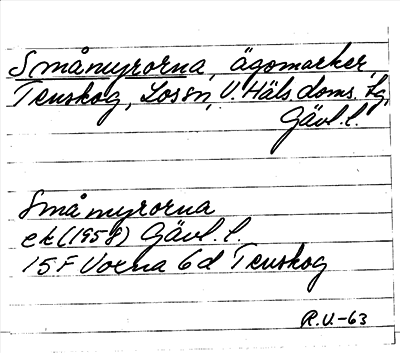 Småmyrorna, ägomarker,
Tenskog, Lossn, V. Häls. doms. lg,
Gävl. l.
Småmyrorna
ek (1958) Gävl. l.
15F Voxna 6d Tenskog
R.U.-63